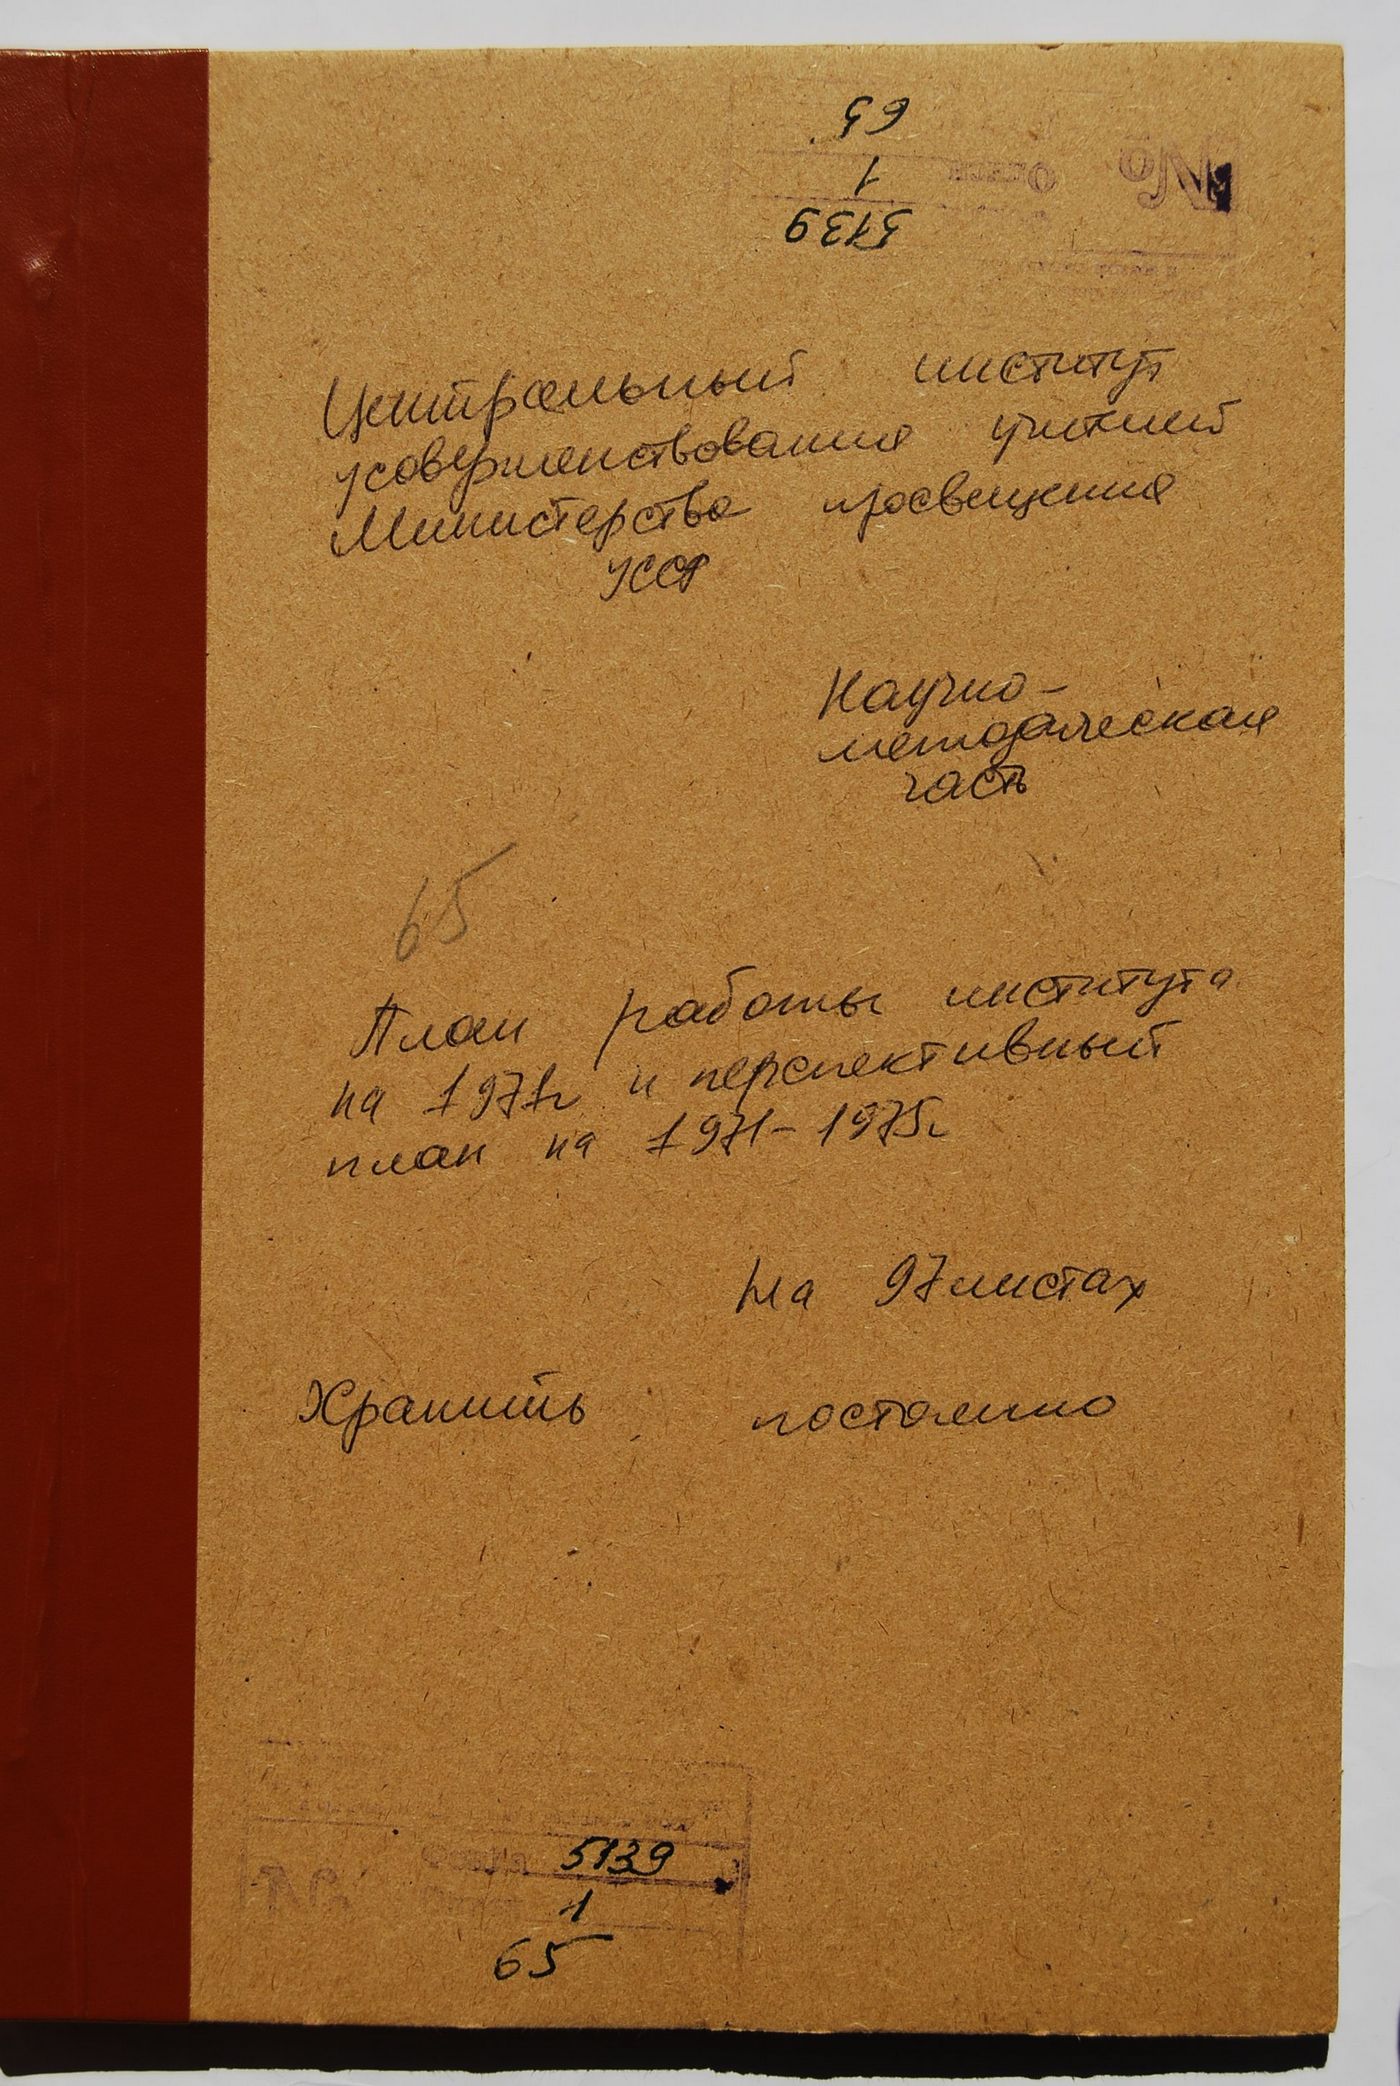 5139
1
65
№
Опись
Центральный институт
усовершенствования учителей
Министерства просвещения
УССР
Научно-
методическая
часть
65
План работы института
на 1971г и перспективный
план на 1971-1975г
на 97 листах
Хранить постоянно
5139
1
65